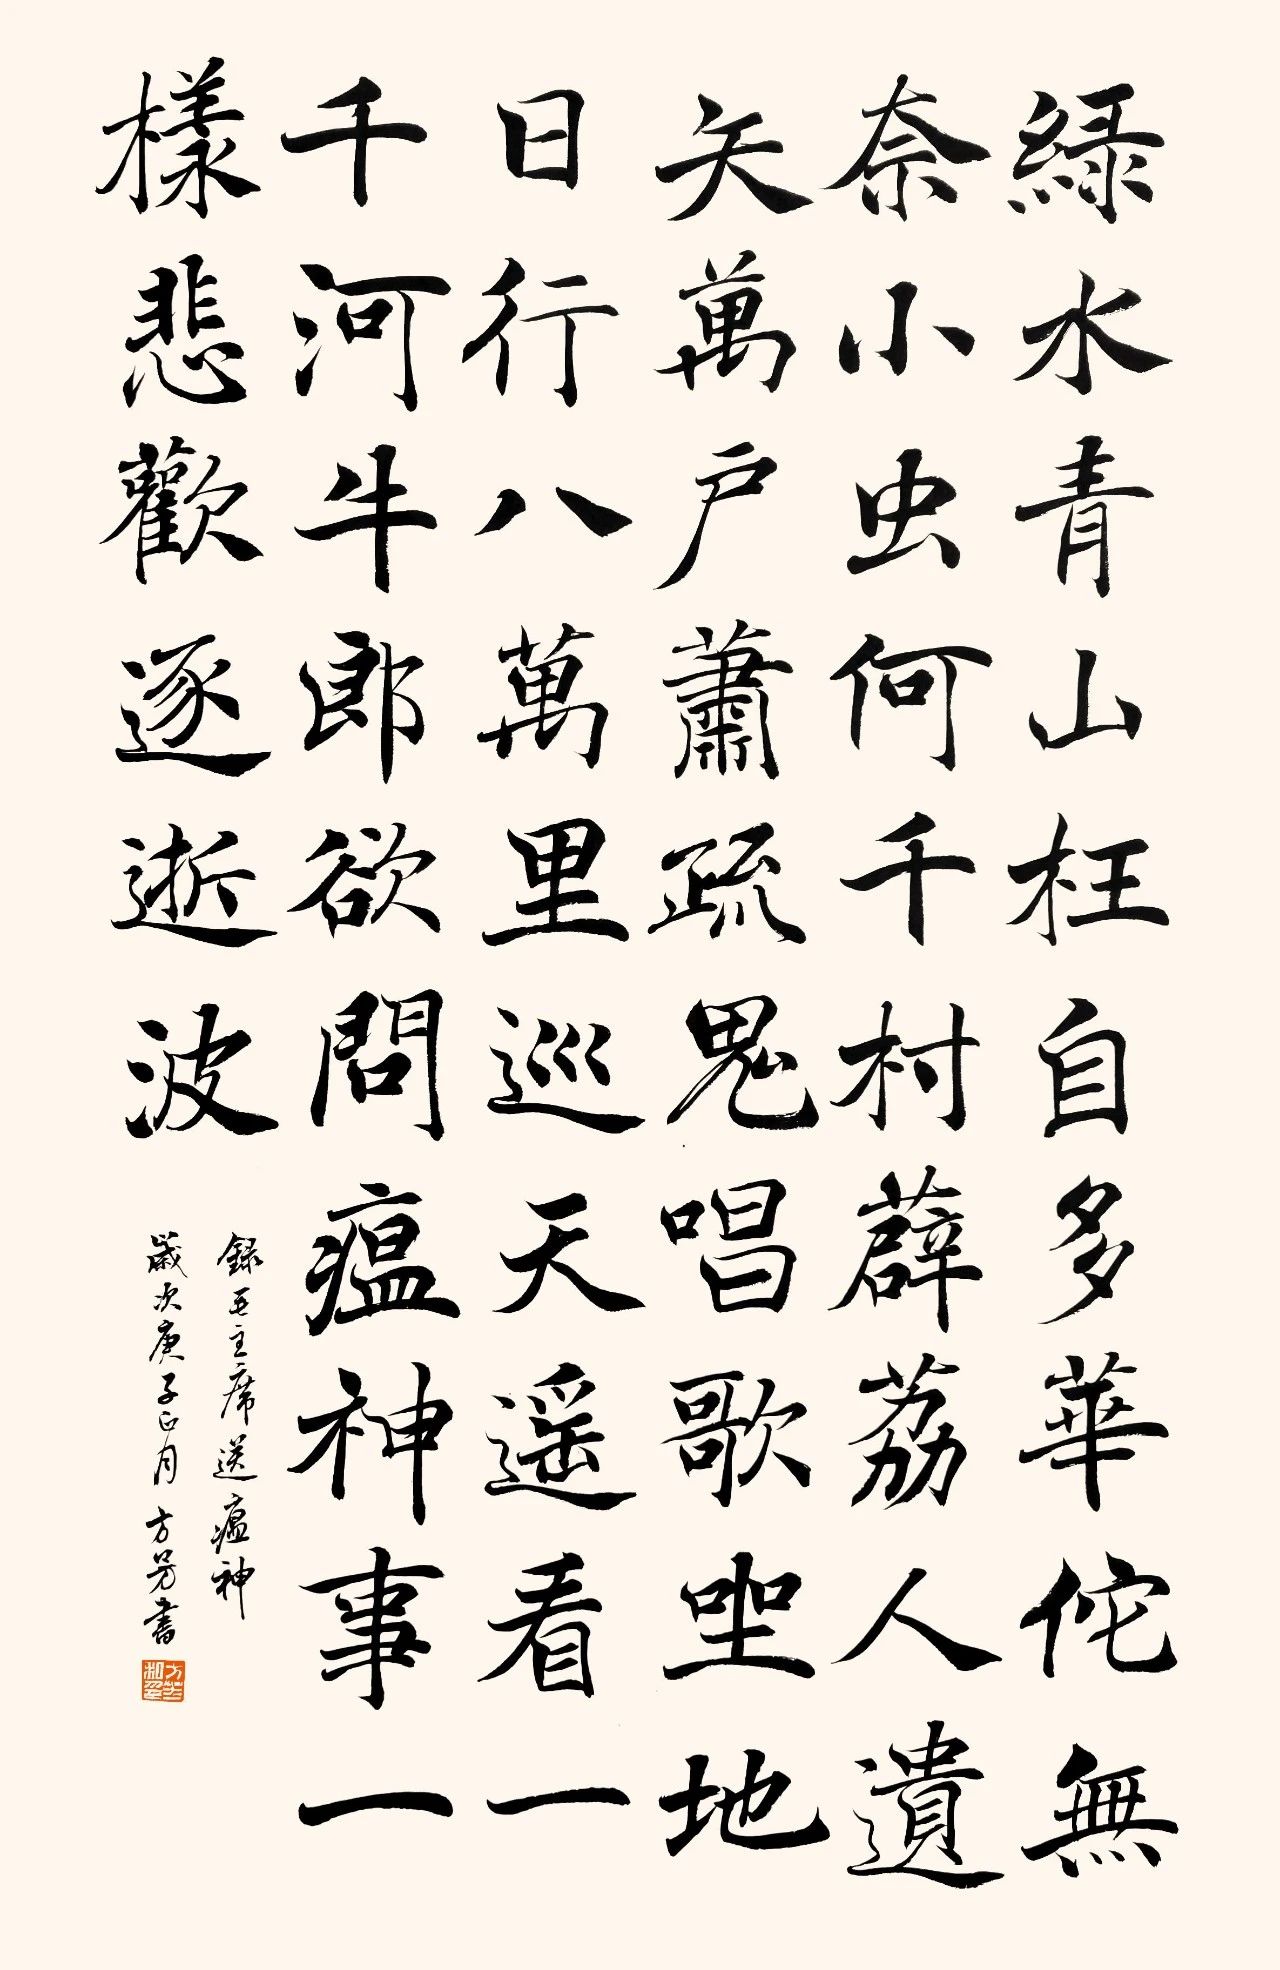 綠水青山枉自多華佗無
奈小虫何千村薜荔人遺
矢萬户蕭疏鬼唱歌坐地
日行八萬里巡天遥看一
千河牛郎欲問瘟神事一
樣悲歡逐逝波
錄毛主席送瘟神
歲次庚子正月方芳書